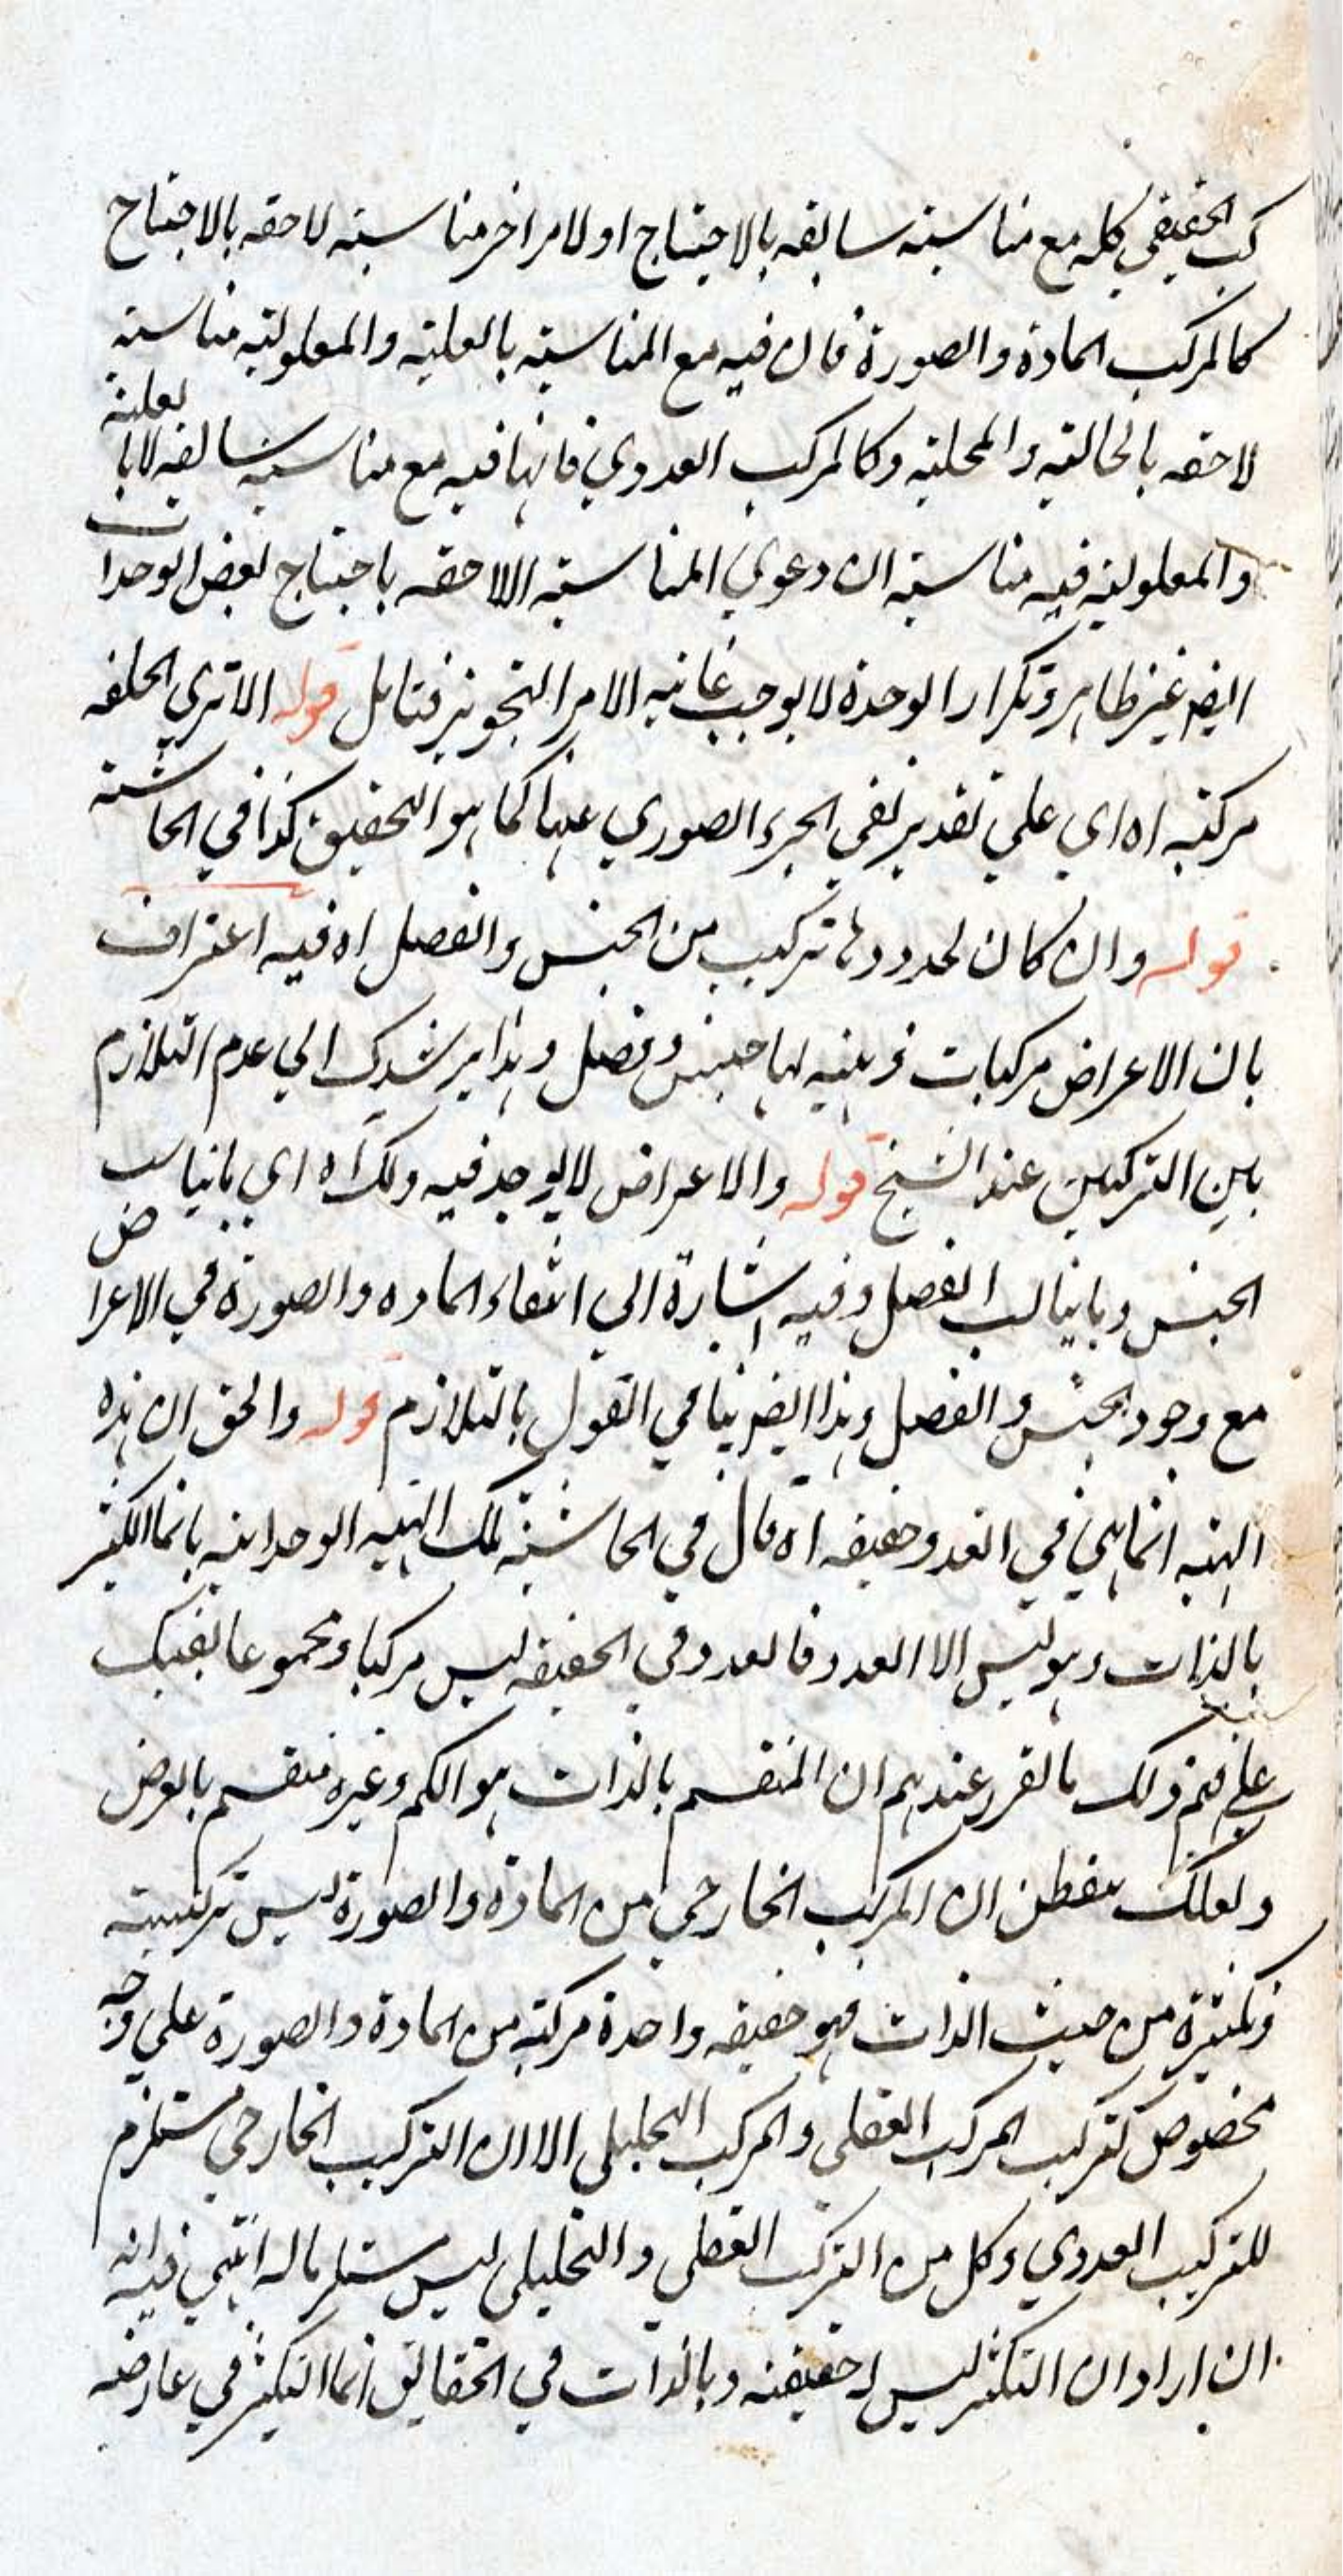 كب الحقيقي كله مع مناسبته سابقه بالاحتياج او لامر اخر مناسبته لاحقه بالاحتياج
كالمركب المادة والصورة فان فيه مع المناسبته بالعليته والمعلوليته مناسبته
لاحقه بالحاليته والمحليته وكالمركب العددي فانها فيه مع مناسبته سابقه لا بالعليته
والمعلوليته فيه مناسبته ان دعوي المناسبته اللاحقه باحتياج بعض الوحدات
ايضا غير ظاهر وتكرار الوحدة لا يوجب غايته الامر التجويز فتامل قوله الا تري الحلقه
مركبه اه اي علي تقدير نفي الجزء الصوري عنها كما هو التحقيق كذا في الحاشيته
قوله وان كان لحدودها تركيب من الجنس والفصل اه فيه اعتراف
بان الاعراض مركبات ذهنيه لها جنس وفصل وهذا يرشدك الي عدم التلازم
بين التركيبين عند الشيخ قوله والاعراض لا يوجد فيه ذلك اه اي ما يناسب
الجنس وما يناسب الفصل وفيه اشارة الي انتفاء الماده والصورة في الاعراض
مع وجود الجنس والفصل وهذا ايضا ينافي القول بالتلازم قوله والحق ان هذه
الهيئه انما هي في العدد حقيقه اه قال في الحاشيته تلك الهيئه الوحدانيه بانما الكثير
بالذات وهو ليس الا العدد فالعدد في الحقيقه ليس مركبا ومجموعا
علي فهم ذلك ما تقرر عندهم ان المنقسم بالذات هو الكم وغيره منقسم بالعرض
ولعلك تتفطن ان المركب الخارجي من المادة والصورة ليس تركيبته
وكثيرة من حيث الذات فهو حقيقه واحدة مركبه من المادة والصورة علي وجه
مخصوص كتركيب المركب العقلي والمركب التحليلي الا ان التركيب الخارجي مستلزم
للتركيب العددي وكل من التركيب العقلي والتحليلي ليس مستلزما له انتهي فيه انه
ان اراد ان التكثر ليس له حقيقته وبالذات في الحقايق انما التكثر في عارضه